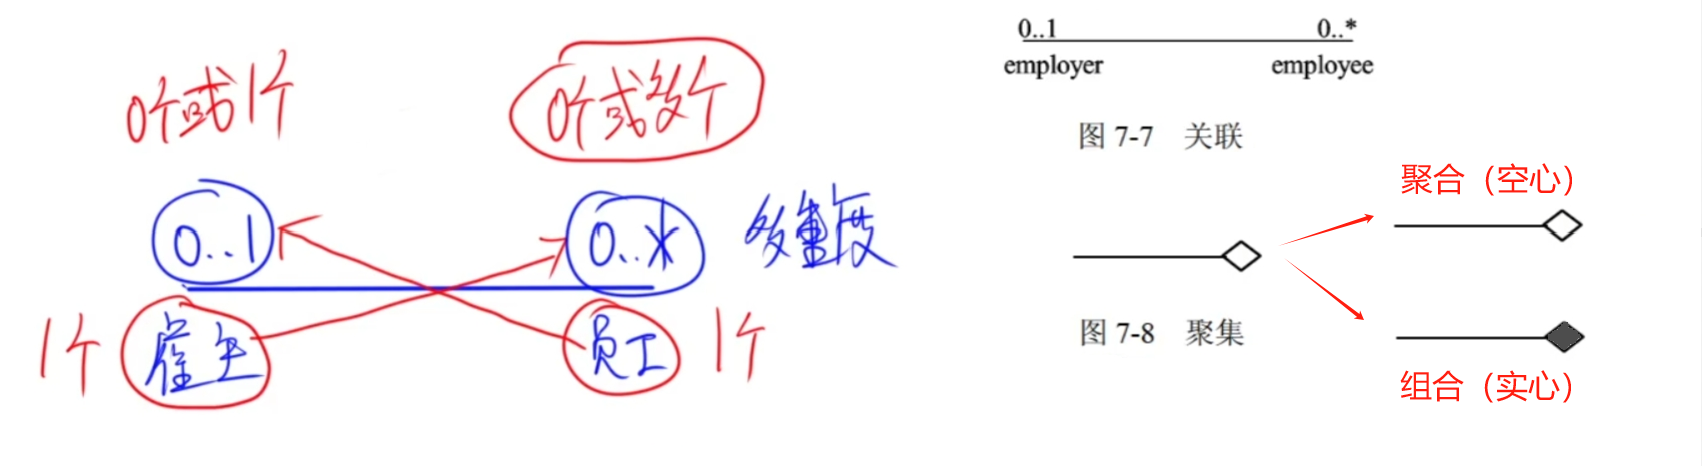 0个或1个
0个或多个
0..1
0..*
多重度
1个
雇主
员工
1个
0..1
0..*
employer
employee
图 7-7 关联
聚合（空心）
图 7-8 聚集
组合（实心）